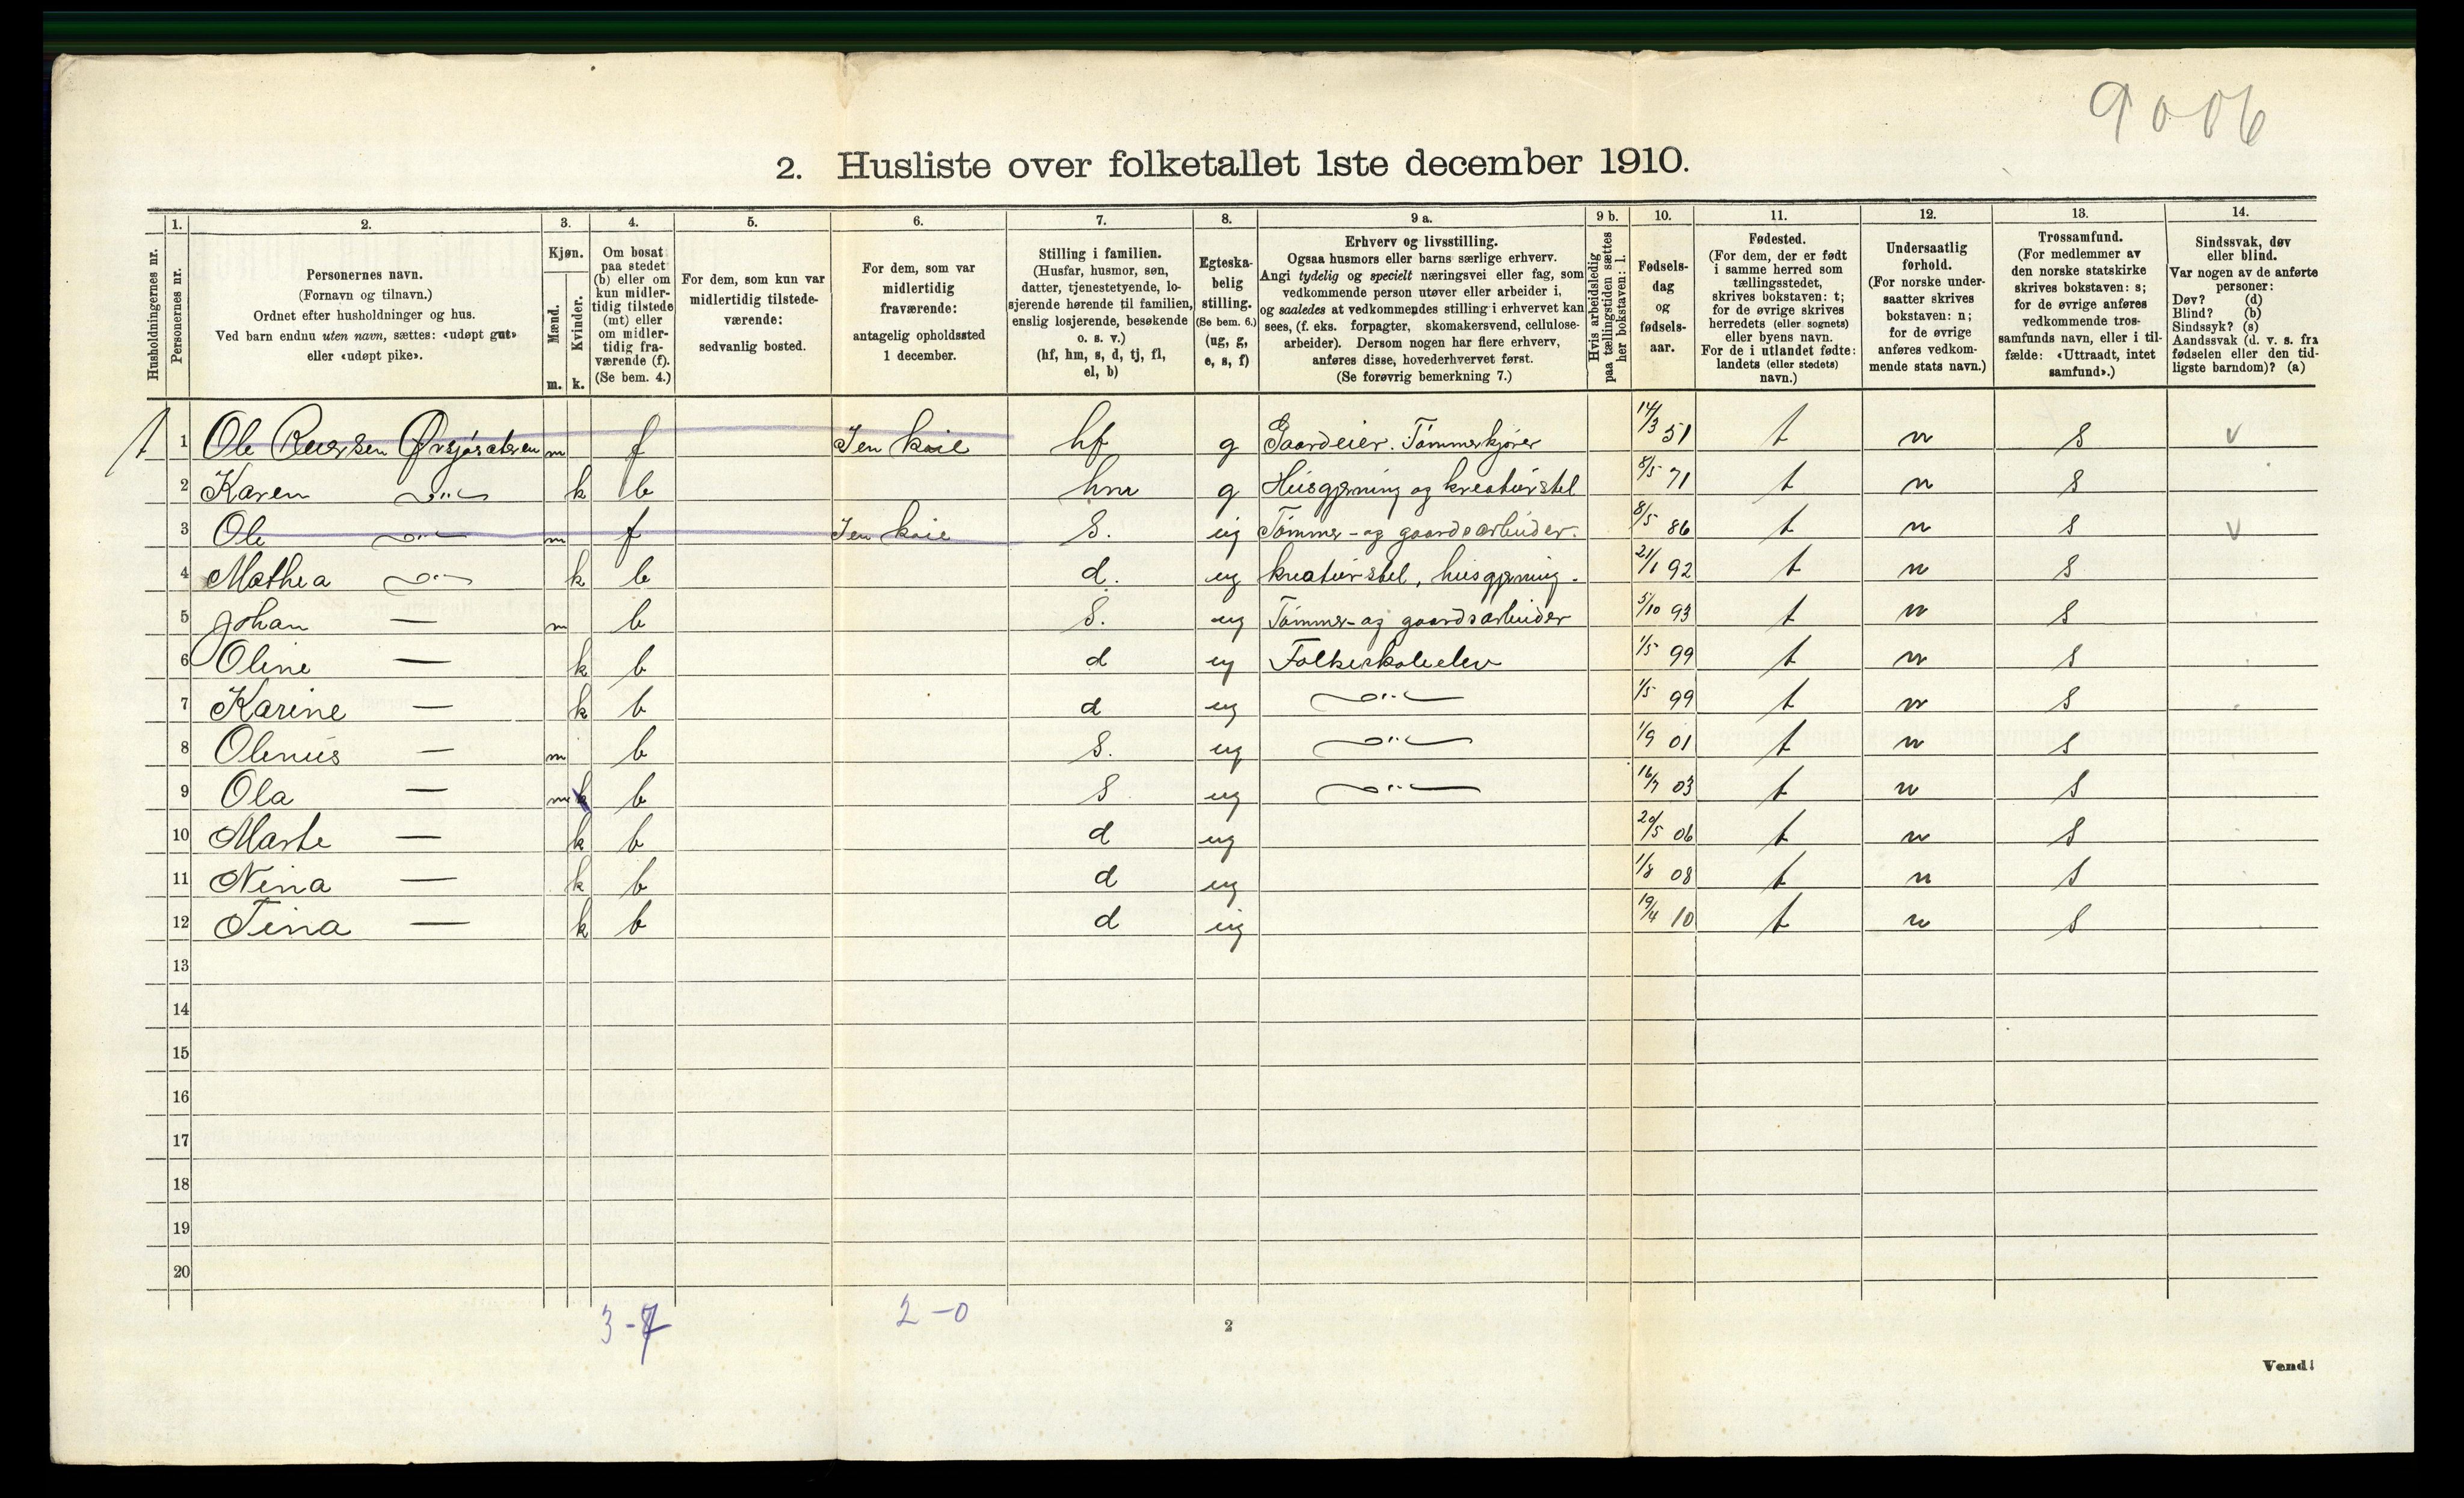 9006
2. Husliste over folketallet 1ste december 1910.
Husholdningernes nr.
1. Personernes nr.
2. Personernes navn. (Fornavn og tilnavn.) Ordnet efter husholdninger og hus. Ved barn endnu uten navn, sættes: «udøpt gut» eller «udøpt pike».
3. Kjøn. Mænd. m. Kvinder. k.
4. Om bosat paa stedet (b) eller om kun midlertidig tilstede (mt) eller om midlertidig fraværende (f). (Se bem. 4.)
5. For dem, som kun var midlertidig tilstedeværende: sedvanlig bosted.
6. For dem, som var midlertidig fraværende: antagelig opholdssted 1 december.
7. Stilling i familien. (Husfar, husmor, søn, datter, tjenestetyende, losjerende hørende til familien, enslig losjerende, besøkende o. s. v.) (hf, hm, s, d, tj, fl, el, b)
8. Egteskabelig stilling. (Se bem. 6.) (ug, g, e, s, f)
9 a. Erhverv og livsstilling. Ogsaa husmors eller barns særlige erhverv. Angi tydelig og specielt næringsvei eller fag, som vedkommende person utøver eller arbeider i, og saaledes at vedkommendes stilling i erhvervet kan sees, (f. eks. forpagter, skomakersvend, cellulosearbeider). Dersom nogen har flere erhverv, anføres disse, hovederhvervet først. (Se forøvrig bemerkning 7.)
9 b. Hvis arbeidsledig paa tællingstiden sættes her bokstaven: l.
10. Fødselsdag og fødselsaar.
11. Fødested. (For dem, der er født i samme herred som tællingsstedet, skrives bokstaven: t; for de øvrige skrives herredets (eller sognets) eller byens navn. For de i utlandet fødte: landets (eller stedets) navn.)
12. Undersaatlig forhold. (For norske undersaatter skrives bokstaven: n; for de øvrige anføres vedkommende stats navn.)
13. Trossamfund. (For medlemmer av den norske statskirke skrives bokstaven: s; for de øvrige anføres vedkommende trossamfunds navn, eller i tilfælde: «Uttraadt, intet samfund».)
14. Sindssvak, døv eller blind. Var nogen av de anførte personer: Døv? (d) Blind? (b) Sindssyk? (s) Aandssvak (d. v. s. fra fødselen eller den tidligste barndom)? (a)
1 1 Ole m f I en koie hf g Gaardeier. Tømmerkjører 14/3 51 t n s v
2 Karen —"— k b hm g Husgjerning og kreaturstel 8/5 71 t n s
3 Ole —"— m f I en koie s. ug Tømmer- og gaardsarbeider. 8/5 86 t n s v
4 Mathea —"— k b d. ug kreaturstel, husgjerning. 21/1 92 t n s
5 Johan — m b s. ug Tømmer- og gaardsarbeider 5/10 93 t n s
6 Oline — k b d ug Folkeskoleelev 1/5 99 t n s
7 Karine — k b d ug —"— 1/5 99 t n s
8 Olenus — m b s. ug —"— 1/9 01 t n s
9 Ola — m k b s ug —"— 16/7 03 t n s
10 Marte — k b d ug 20/5 06 t n s
11 Nina — k b d ug 1/8 08 t n s
12 Tina — k b d ug 19/4 10 t n s
13
14
15
16
17
18
19
20
3-7 2-0
2
Vend!